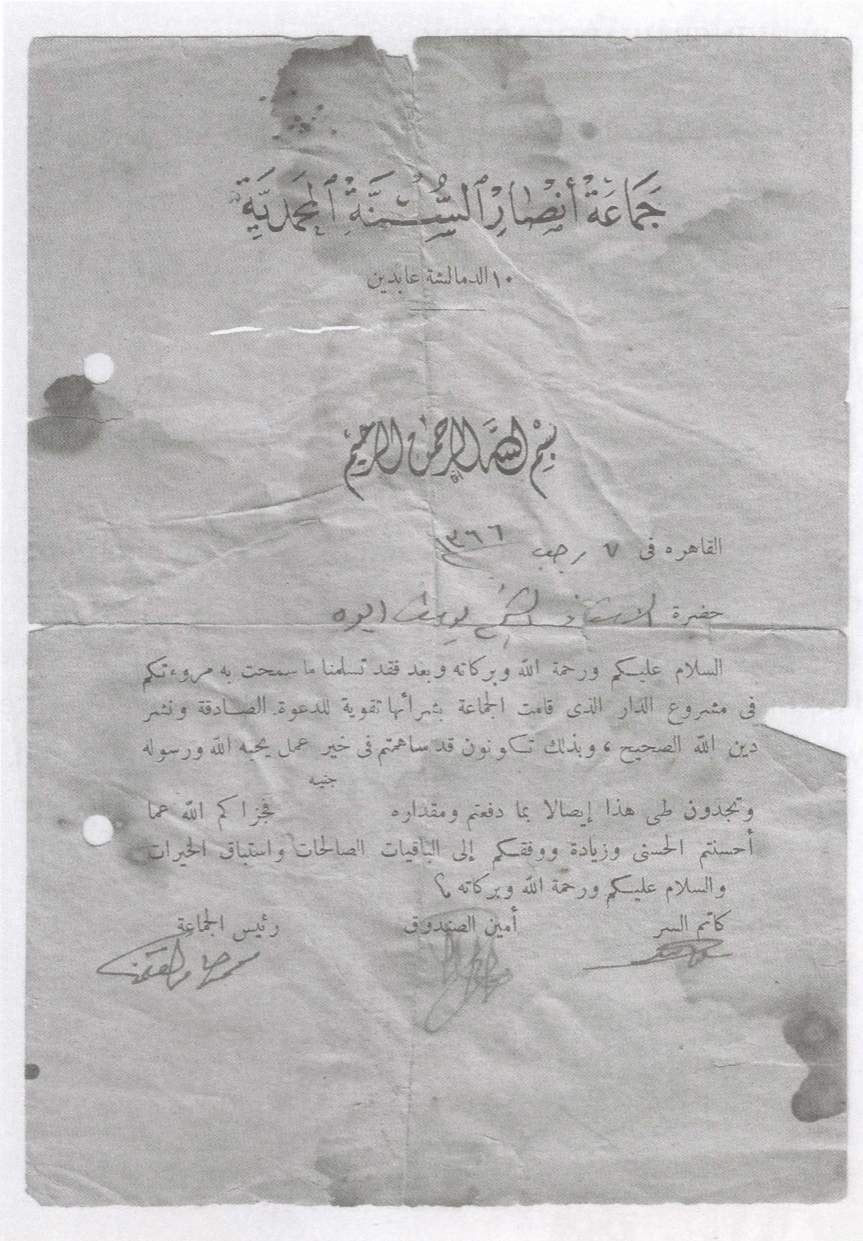 جَمَاعَةُ أَنْصَارِ ٱلسُّنَّةِ ٱلْمُحَمَّدِيَّةِ
١٠ الدمالشة عابدين
بسم الله الرحمن الرحيم
القاهره فى ٧ رجب ١٣٦٦
حضرة الاستاذ الشيخ يوسف
السلام عليكم ورحمة الله وبركاته وبعد فقد تسلمنا ما سمحت به مروءتكم
فى مشروع الدار الذى قامت الجماعة بشرائها تقوية للدعوة الصادقة ونشر
دين الله الصحيح ، وبذلك تكونون قد ساهمتم فى خير عمل يحبه الله ورسوله
جنيه
وتجدون طى هذا إيصالا بما دفعتم ومقداره فجزاكم الله عما
أحسنتم الحسنى وزيادة ووفقكم إلى الباقيات الصالحات واستباق الخيرات
والسلام عليكم ورحمة الله وبركاته ؟
كاتم السر أمين الصندوق رئيس الجماعة